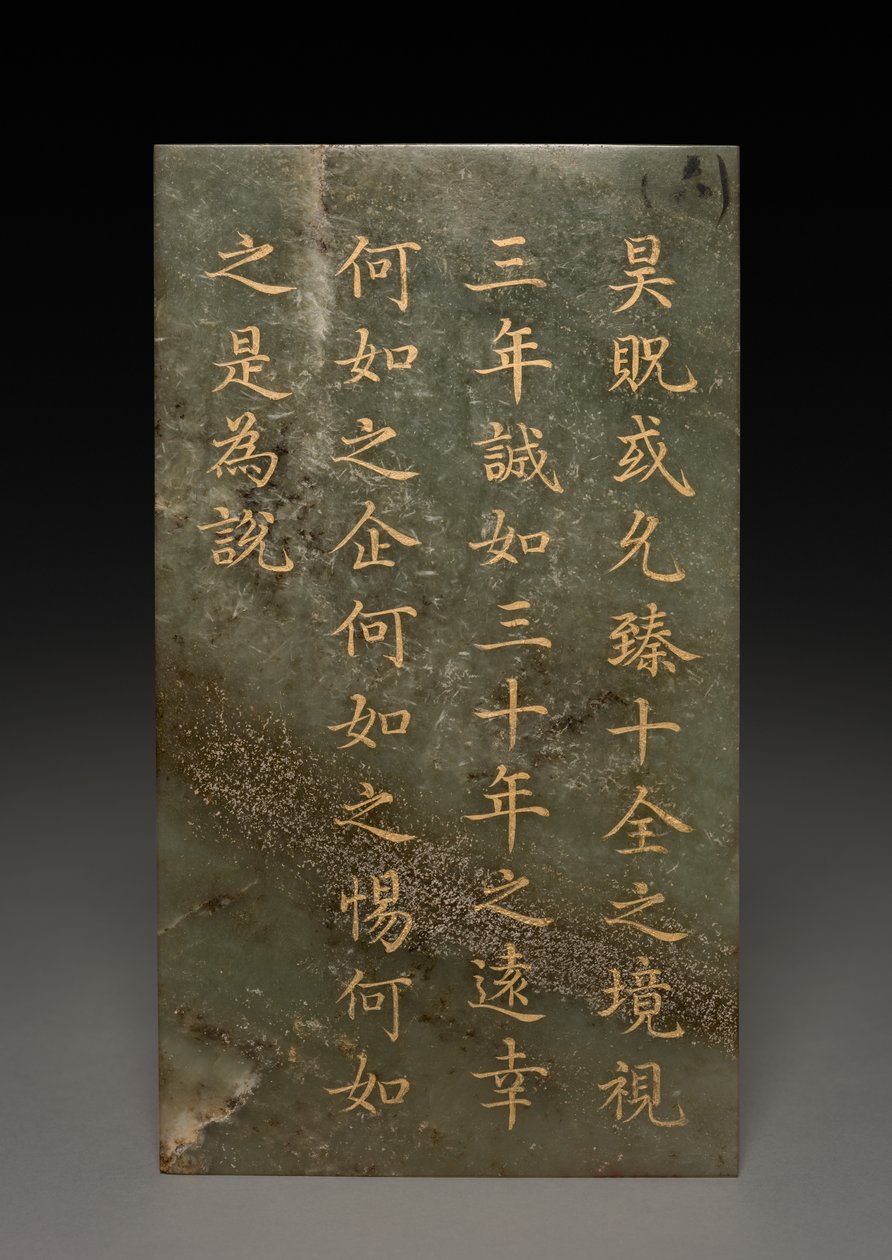 昊貺或允臻十全之境視
三年誠如三十年之遠幸
何如之企何如之惕何如
之是為説